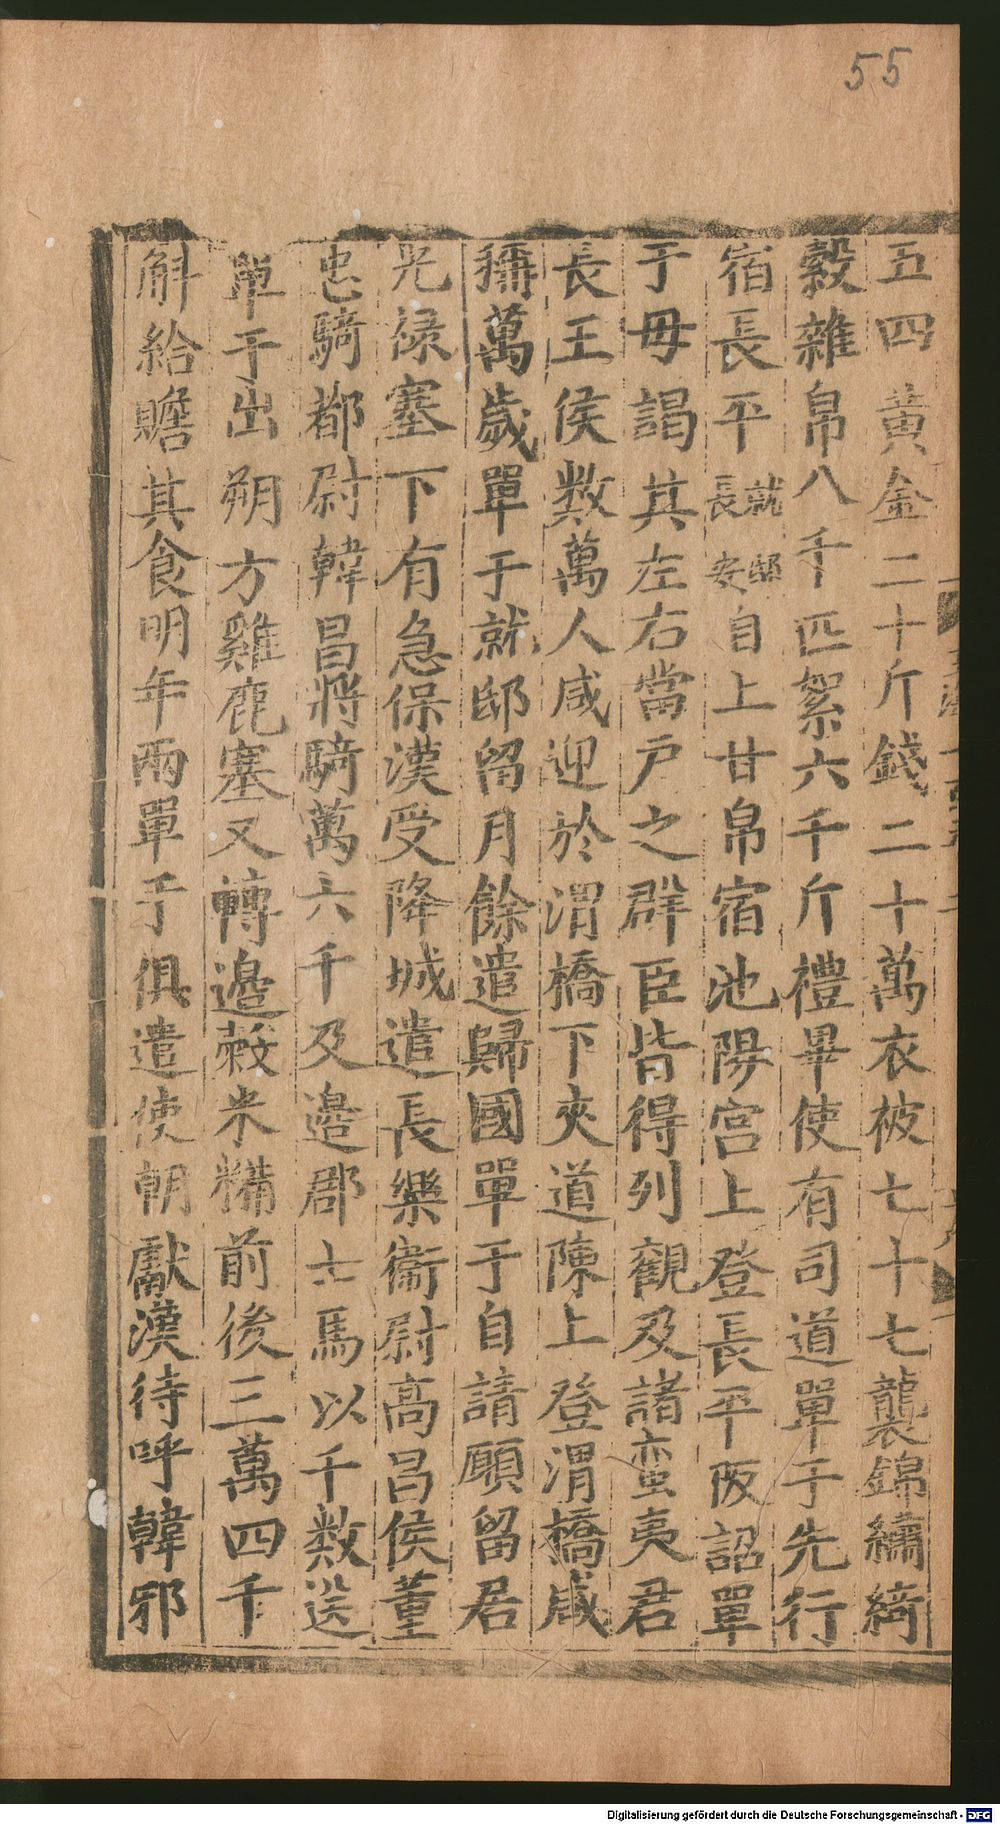 55
五四黃金二十斤錢二十萬衣被七十七襲錦繡綺
縠雜帛八千匹絮六千斤禮畢使有司道單于先行
宿長平就邸長安自上甘帛宿池陽宮上登長平阪詔單
于毋謁其左右當户之群臣皆得列觀及諸蛮夷君
長王侯数萬人咸迎於渭橋下夾道陳上登渭橋咸
稱萬歲單于就邸留月餘遣歸國單于自請願留居
光祿塞下有急保漢受降城遣長樂衞尉高昌侯董
忠騎都尉韓昌將騎萬六千及邉郡士馬以千数送
單于出朔方雞鹿塞又轉邉穀米糒前後三萬四千
斛給贍其食明年兩單于俱遣使朝獻漢待呼韓邪
Digitalisierung gefördert durch die Deutsche Forschungsgemeinschaft - DFG